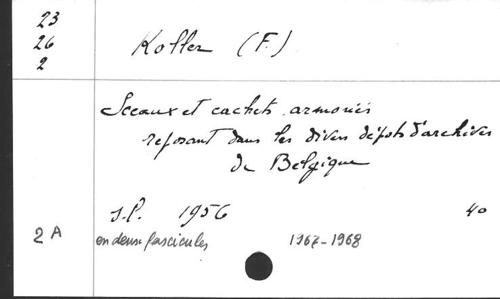 23
26
2
Koller (F.)
Sceaux et cachets armoriés
reposant dans les divers dépôts d'archives
de Belgique
s.l. 1956 40
2 A
en deux fascicules 1967-1968